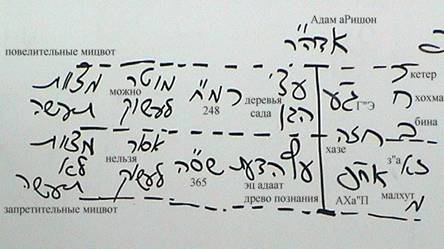 Адам аРишон
אדה"ר
повелительные мицвот
מצוות можно מוטר רמ"ח עצי גע כ кетер
תעשה לעסוק 248 деревья Г"Э ח хохма
сада הגן ב бина
מצוות нельзя אסור שס"ה עץ הדעת חזה хазе
לא לעסוק 365 эц адаат אחפ זא з"а
תעשה древо познания АХа"П малхут
запретительные мицвот מ